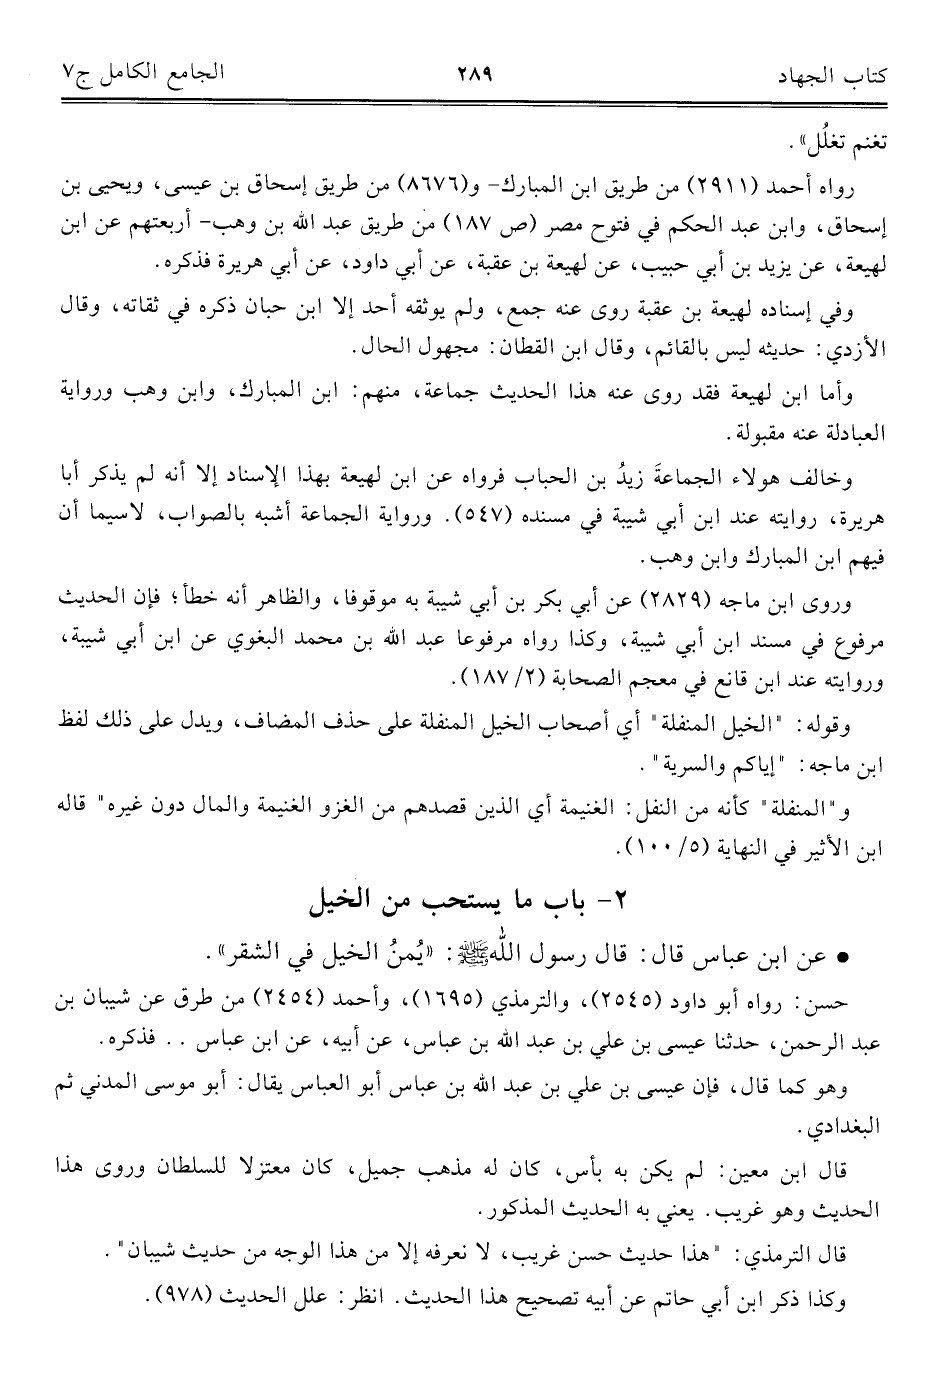 كتاب الجهاد ٢٨٩ الجامع الكامل ج٧
تغنم تغلُل» .
رواه أحمد (٢٩١١) من طريق ابن المبارك- و(٨٦٧٦) من طريق إسحاق بن عيسى، ويحيى بن
إسحاق، وابن عبد الحكم في فتوح مصر (ص ١٨٧) من طريق عبد الله بن وهب- أربعتهم عن ابن
لهيعة، عن يزيد بن أبي حبيب، عن لهيعة بن عقبة، عن أبي داود، عن أبي هريرة فذكره.
وفي إسناده لهيعة بن عقبة روى عنه جمع، ولم يوثقه أحد إلا ابن حبان ذكره في ثقاته، وقال
الأزدي: حديثه ليس بالقائم، وقال ابن القطان: مجهول الحال.
وأما ابن لهيعة فقد روى عنه هذا الحديث جماعة، منهم: ابن المبارك، وابن وهب ورواية
العبادلة عنه مقبولة.
وخالف هولاء الجماعةَ زيدُ بن الحباب فرواه عن ابن لهيعة بهذا الإسناد إلا أنه لم يذكر أبا
هريرة، روايته عند ابن أبي شيبة في مسنده (٥٤٧). ورواية الجماعة أشبه بالصواب، لاسيما أن
فيهم ابن المبارك وابن وهب.
وروى ابن ماجه (٢٨٢٩) عن أبي بكر بن أبي شيبة به موقوفا، والظاهر أنه خطأ؛ فإن الحديث
مرفوع في مسند ابن أبي شيبة، وكذا رواه مرفوعا عبد الله بن محمد البغوي عن ابن أبي شيبة،
وروايته عند ابن قانع في معجم الصحابة (٢/ ١٨٧).
وقوله: "الخيل المنفلة" أي أصحاب الخيل المنفلة على حذف المضاف، ويدل على ذلك لفظ
ابن ماجه: "إياكم والسرية" .
و"المنفلة" كأنه من النفل: الغنيمة أي الذين قصدهم من الغزو الغنيمة والمال دون غيره" قاله
ابن الأثير في النهاية (٥/ ١٠٠).
٢- باب ما يستحب من الخيل
• عن ابن عباس قال: قال رسول الله ﷺ: «يُمنُ الخيل في الشقر» .
حسن: رواه أبو داود (٢٥٤٥)، والترمذي (١٦٩٥)، وأحمد (٢٤٥٤) من طرق عن شيبان بن
عبد الرحمن، حدثنا عيسى بن علي بن عبد الله بن عباس، عن أبيه، عن ابن عباس .. فذكره.
وهو كما قال، فإن عيسى بن علي بن عبد الله بن عباس أبو العباس يقال: أبو موسى المدني ثم
البغدادي.
قال ابن معين: لم يكن به بأس، كان له مذهب جميل، كان معتزلا للسلطان وروى هذا
الحديث وهو غريب. يعني به الحديث المذكور.
قال الترمذي: "هذا حديث حسن غريب، لا نعرفه إلا من هذا الوجه من حديث شيبان" .
وكذا ذكر ابن أبي حاتم عن أبيه تصحيح هذا الحديث. انظر: علل الحديث (٩٧٨).